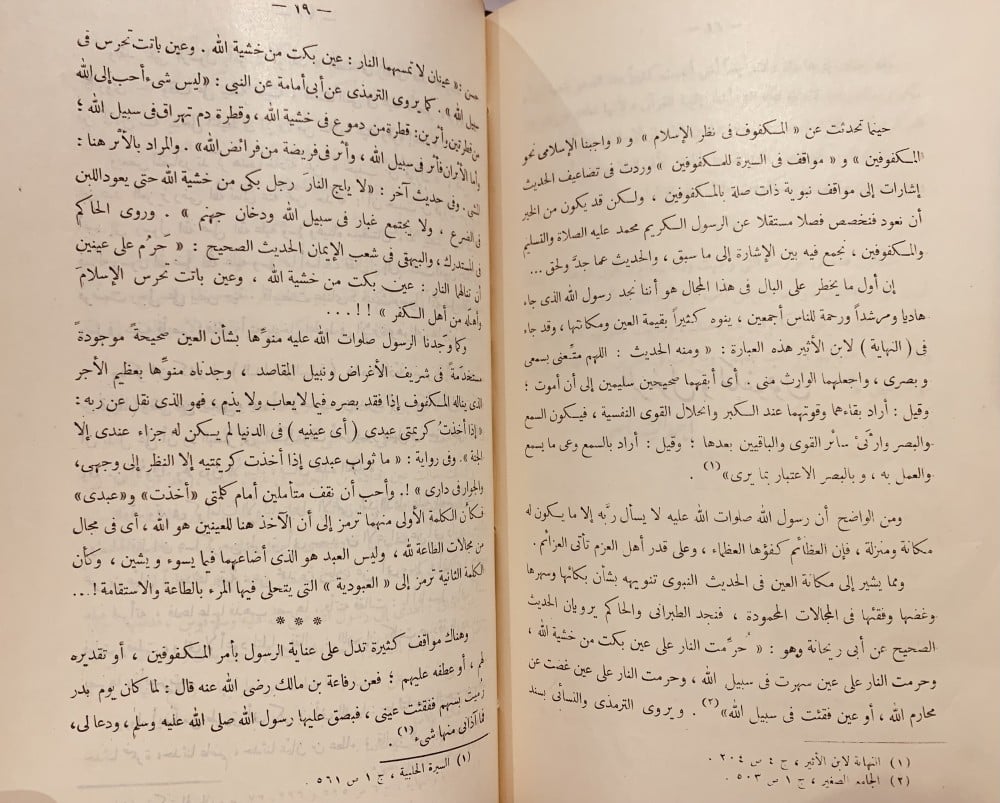 حينما تحدثت عن « المكفوف فى نظر الإسلام » و « واجبنا الإسلامى نحو
المكفوفين » و « مواقف فى السيرة للمكفوفين » وردت فى تضاعيف الحديث
إشارات إلى مواقف نبوية ذات صلة بالمكفوفين ، ولكن قد يكون من الخير
أن نعود فنخصص فصلا مستقلا عن الرسول الكريم محمد عليه الصلاة والتسليم
والمكفوفين ، نجمع فيه بين الإشارة إلى ما سبق ، والحديث عما جدَّ ولحق ...
إن أول ما يخطر على البال فى هذا المجال هو أننا نجد رسول الله الذى جاء
هاديا ومرشداً ورحمة للناس أجمعين ، ينوه كثيراً بقيمة العين ومكانتها ، وقد جاء
فى ( النهاية ) لابن الأثير هذه العبارة : « ومنه الحديث : اللهم متّعنى بسمعى
وبصرى ، واجعلهما الوارث منى . أى أبقهما صحيحين سليمين إلى أن أموت ؛
وقيل : أراد بقاءهما وقوتهما عند الكبر وانحلال القوى النفسية ، فيكون السمع
والبصر وارثَىْ سائر القوى والباقيين بعدها ؛ وقيل : أراد بالسمع وعى ما يسمع
والعمل به ، وبالبصر الاعتبار بما يرى» (١) .
ومن الواضح أن رسول الله صلوات الله عليه لا يسأل ربَّه إلا ما يكون له
مكانة ومنزلة ، فإن العظائم كفؤها العظماء ، وعلى قدر أهل العزم تأتى العزائم .
ومما يشير إلى مكانة العين فى الحديث النبوى تنويهه بشأن بكائها وسهرها
وغضها وفقئها فى المجالات المحمودة ، فنجد الطبرانى والحاكم يرويان الحديث
الصحيح عن أبى ريحانة وهو : « حُرِّمت النار على عين بكت من خشية الله ،
وحرمت النار على عين سهرت فى سبيل الله ، وحرمت النار على عين غضت عن
محارم الله ، أو عين فقئت فى سبيل الله» (٢) . ويروى الترمذى والنسائى بسند
(١) النهاية لابن الأثير ، ج ٤ ص ٢٠٤ .
(٢) الجامع الصغير ، ج ١ ص ٥٠٣ .
— ١٩ —
حسن : « عينان لا تمسهما النار : عين بكت من خشية الله . وعين باتت تحرس فى
سبيل الله » . كما يروى الترمذى عن أبى أمامة عن النبى : «ليس شىء أحب إلى الله
من قطرتين وأثرين : قطرة من دموع فى خشية الله ، وقطرة دم تهراق فى سبيل الله ؛
وأما الأثران فأثر فى سبيل الله ، وأثر فى فريضة من فرائض الله» . والمراد بالأثر هنا :
المشى . وفى حديث آخر : «لا يلج النارَ رجل بكى من خشية الله حتى يعود اللبن
فى الضرع ، ولا يجتمع غبار فى سبيل الله ودخان جهنم » . وروى الحاكم
فى المستدرك ، والبيهقى فى شعب الإيمان الحديث الصحيح : « حَرُم على عينين
أن تنالهما النار : عين بكت من خشية الله ، وعين باتت تحرس الإسلامَ
وأهلَه من أهل الكفر » !! ...
وكما وَجَدنا الرسول صلوات الله عليه منوِّها بشأن العين صحيحةً موجودةً
مستخدَمةً فى شريف الأغراض ونبيل المقاصد ، وجدناه منوِّها بعظيم الأجر
الذى يناله المكفوف إذا فقد بصره فيما لا يعاب ولا يذم ، فهو الذى نقل عن ربه :
«إذا أخذتُ كريمتى عبدى ( أى عينيه ) فى الدنيا لم يكن له جزاء عندى إلا
الجنة» . وفى رواية : « ما ثواب عبدى إذا أخذت كريمتيه إلا النظر إلى وجهى،
والجوار فى دارى » !. وأحب أن نقف متأملين أمام كلمتى «أخذت» و«عبدى»
فكأن الكلمة الأولى منهما ترمز إلى أن الآخذ هنا للعينين هو الله ، أى فى مجال
من مجالات الطاعة لله ، وليس العبد هو الذى أضاعهما فيما يسوء ويشين ، وكأن
الكلمة الثانية ترمز إلى « العبودية » التى يتحلى فيها المرء بالطاعة والاستقامة !...
* * *
وهناك مواقف كثيرة تدل على عناية الرسول بأمر المكفوفين ، أو تقديره
لهم ، أو عطفه عليهم ؛ فعن رفاعة بن مالك رضى الله عنه قال : لما كان يوم بدر
رُميتُ بسهم ففقئت عينى ، فبصق عليها رسول الله صلى الله عليه وسلم ، ودعا لى،
فما آذانى منها شىء (١) .
(١) السيرة الحلبية ، ج ١ ص ٥٦١ .